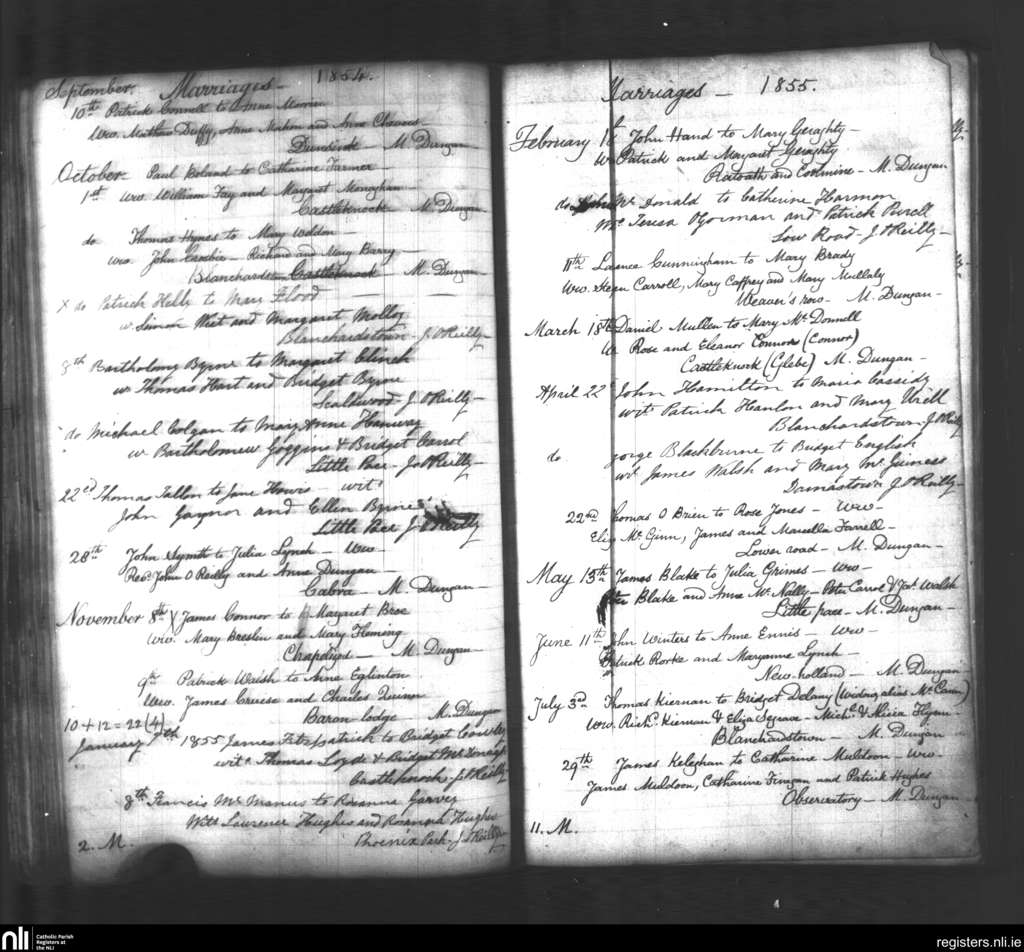 September. Marriages - 1854.
10th Patrick Connell to Anne
Wv. Matthew Duffy, Anne Mahon and Anne
M Dungan
October Paul Boland to Catharine Farmer
1st wv. William Fay and Margaret Monaghan
Castleknock M Dungan
do Thomas Hynes to Mary Weldon
wv. John Richard and Mary Barry
Blanchardstown Castleknock M Dungan
x do Patrick to Mary Flood
w Simon and Margaret Molloy
Blanchardstown - J O'Reilly -
8th Bartholomy Byrne to Margaret Clinch
w Thomas Hart and Bridget Byrne
Scaldwood J O'Reilly -
do Michael Colgan to Mary Anne
w Bartholomew Goggins & Bridget Carrol
Little Pace - J O'Reilly -
22nd Thomas Fallon to Jane - wits
John Gaynor and Ellen Byrne
Little Pace J O'Reilly
28th John Symth to Julia Lynch - Wv -
Revd. John O Reilly and Anne Dungan
Cabra - M Dungan -
November 8th X James Connor to Margaret Broe
wv. Mary Breslin and Mary Fleming
Chapelizod - M. Dungan -
9th Patrick Walsh to Anne Eglinton
Wv. James Cruise and Charles Quinn
Baron lodge M. Dungan
10 + 12 = 22 (4)
January 7th 1855 James Fitzpatrick to Bridget
wits Thomas Loyde & Bridget
Castleknock J O'Reilly
8th Francis Mc Manus to Roeanna Garvey
Witt Laurence Hughes and Roeanna Hughes
Phoenix Park - J O'Reilly
2. M.
Marriages - 1855.
February John Hand to Mary Geraghty -
Wv Patrick and Margaret Geraghty
Ratoath and Coolmine - M. Dungan
do John Mc Donald to Catherine Harmon
Teresa O'Gorman and Patrick Purcell
Low Road - J O'Reilly -
11th Cunningham to Mary Brady
Wv. Carroll, Mary Caffrey and Mary Mullaly
Weaver's row - M. Dungan -
March 18th Daniel Mullen to Mary Mc Donnell
Wv Rose and Eleanor Connors (Connor)
Castleknock (Glebe) M. Dungan -
April 22 John Hamilton to Maria Cassidy
wits Patrick Hanlon and Mary
Blanchardstown J O'Reilly
do gorge Blackburne to Bridget English
wit James Walsh and Mary Mc Guiness
Damastown J O'Reilly -
22nd Thomas O Brien to Rose Jones - Wv -
Eliz Mc Ginn, James and Marcella Farrell -
Lower road - M. Dungan -
May 13th James Blake to Julia Grimes - Wv -
Peter Blake and Anne Mc Nally - Peter Carrol & Jas. Walsh
Little pace - M. Dungan -
June 11th John Winters to Anne Ennis - Wv -
Patrick Rorke and Maryanne Lynch -
New-holland - M. Dungan -
July 3rd Thomas Kiernan to Bridget Delany (Widow, alias Mc Cann)
Wv. Richd. Kiernan & Eliza Segrave - Michl. & Alicia Flynn -
Blanchardstown - M. Dungan -
29th James Keleghan to Catharine Muldoon - Wv -
James Muldoon, Catharine Finegan and Patrick Hughes
Observatory - M. Dungan
11. M.
nli Catholic Parish
Registers at
the NLI
registers.nli.ie